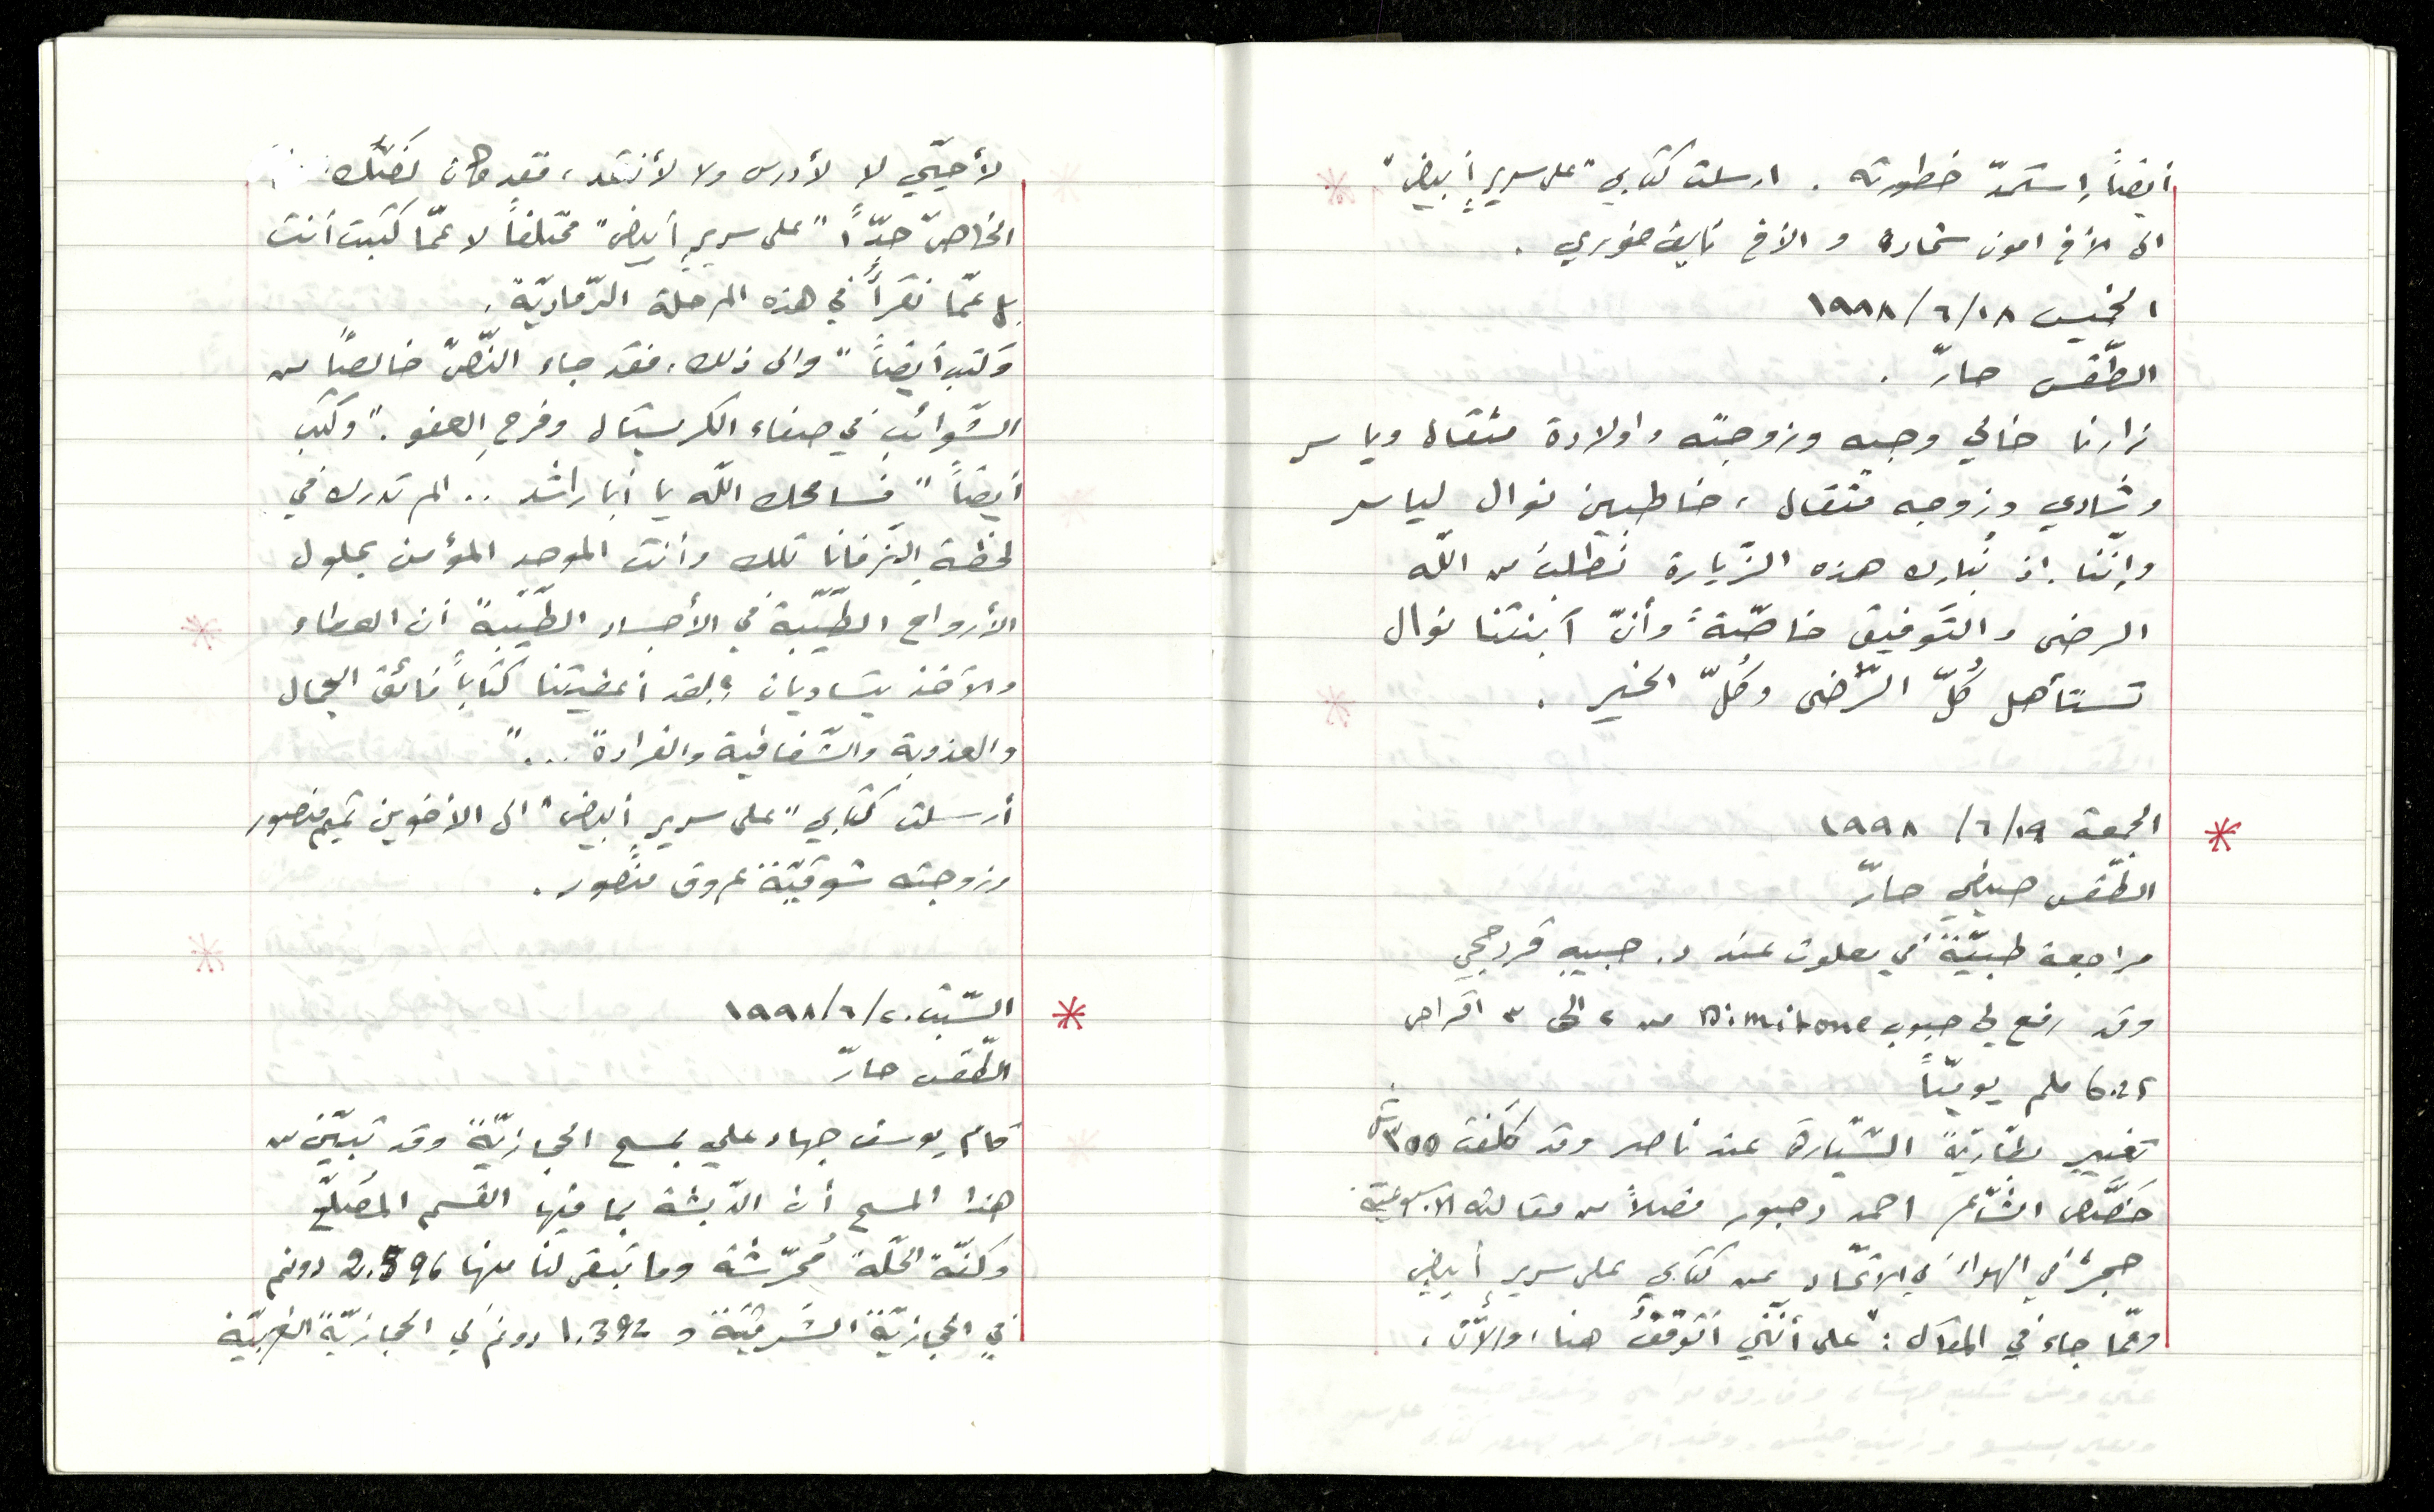 أيضاً إستمدّ خطورته . ارسلت كتابي "على سريرٍ أبيض"
الى الأخ امون شحادة و الأخ نايف خوري .
الخميس ١٩٩٨/٦/١٨
الطّقس حارّ .
زارنا خالي وجيه وزوجته واولادة مثقال وياسر
وشادي وزوجه مثقال ، خاطبين نوال لياسر
وإنّنا إذ نُبارك هذه الزّيارة نطلب من الله
الرضى والتّوفيق خاصّةً وأنّ آبنتنا نوال
تستأهل كُلّ الرّضى وكُلّ الخير .
* الجمعة ١٩٩٨/٦/١٩
الطّقس صيفي حارّ
مراجعة طبيّة في معلوت عند د. حبيب قردحجي
وقد رفع لي حبوب Dimitone من ٢ الى ٣ اقراص
6.25 ملم يوميّاً
تغيير بطّاريّة السّيّارة عند ناصر وقد كلّفت ٣٥٥ ش
خصّص الشّاعر احمد دحبور فصلاً من مقالته الاسبوعيّة
حجرٌ في الهواء في الاتّحاد عن كتابي على سريرٍ أبيض
وممّا جاء في المقال : "على أنّني أتوقّفُ هنا ، والآن ،
لأحيّي لا لأدرس ولا لأنتقد ، فقد كان نصّك
الخاصّ جدّاً "على سريرٍ أبيض" مختلفاً لا عمّا كتبت أنت
بل عمّا نقرأُ في هذه المرحلة الرّماديّة .
وكتب أيضاً "والى ذلك ، فقد جاء النّصّ خالصاً من
الشّوائب في صفاء الكريستال وفرحِ العفو ." وكتب
أيضاً "فسامحك الله يا أبا راشد .. الم تدرك في
لحظة النرفانا تلك وأنت الموحد المؤمن بحلول
الأرواح الطّيّبة في الأجساد الطّيّبة أن العطاء
والأخذ يتساويان ؟ لقد أعطيتنا كتاباً فائق الجمال
والعذوبة والشّفافية والفرادة ..."
أرسلت كتابي "على سريرٍ أبيض" الى الأخوين تميم منصور
وزوجته شوقيّة عروق منصور .
* السّبت ١٩٩٨/٦/٢٠
الطّقس حارّ
قام يوسف جهاد علي بمسح الحجازيّة وقد تبيّن من
هذا المسح أن الدّبشة بما فيها القسم المصلّح
وكنّة الحلّة مُحرّشة وما تبقى لنا منها 2.596 دونم
في الحجازيّة الشّرقيّة و 1.392 دونم في الحجازيّة الغربيّة